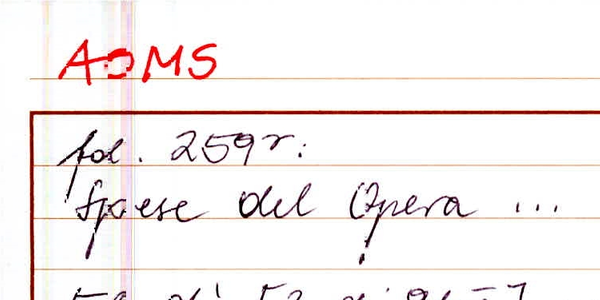 AOMS
fol. 259r:
Spese del Opera ...